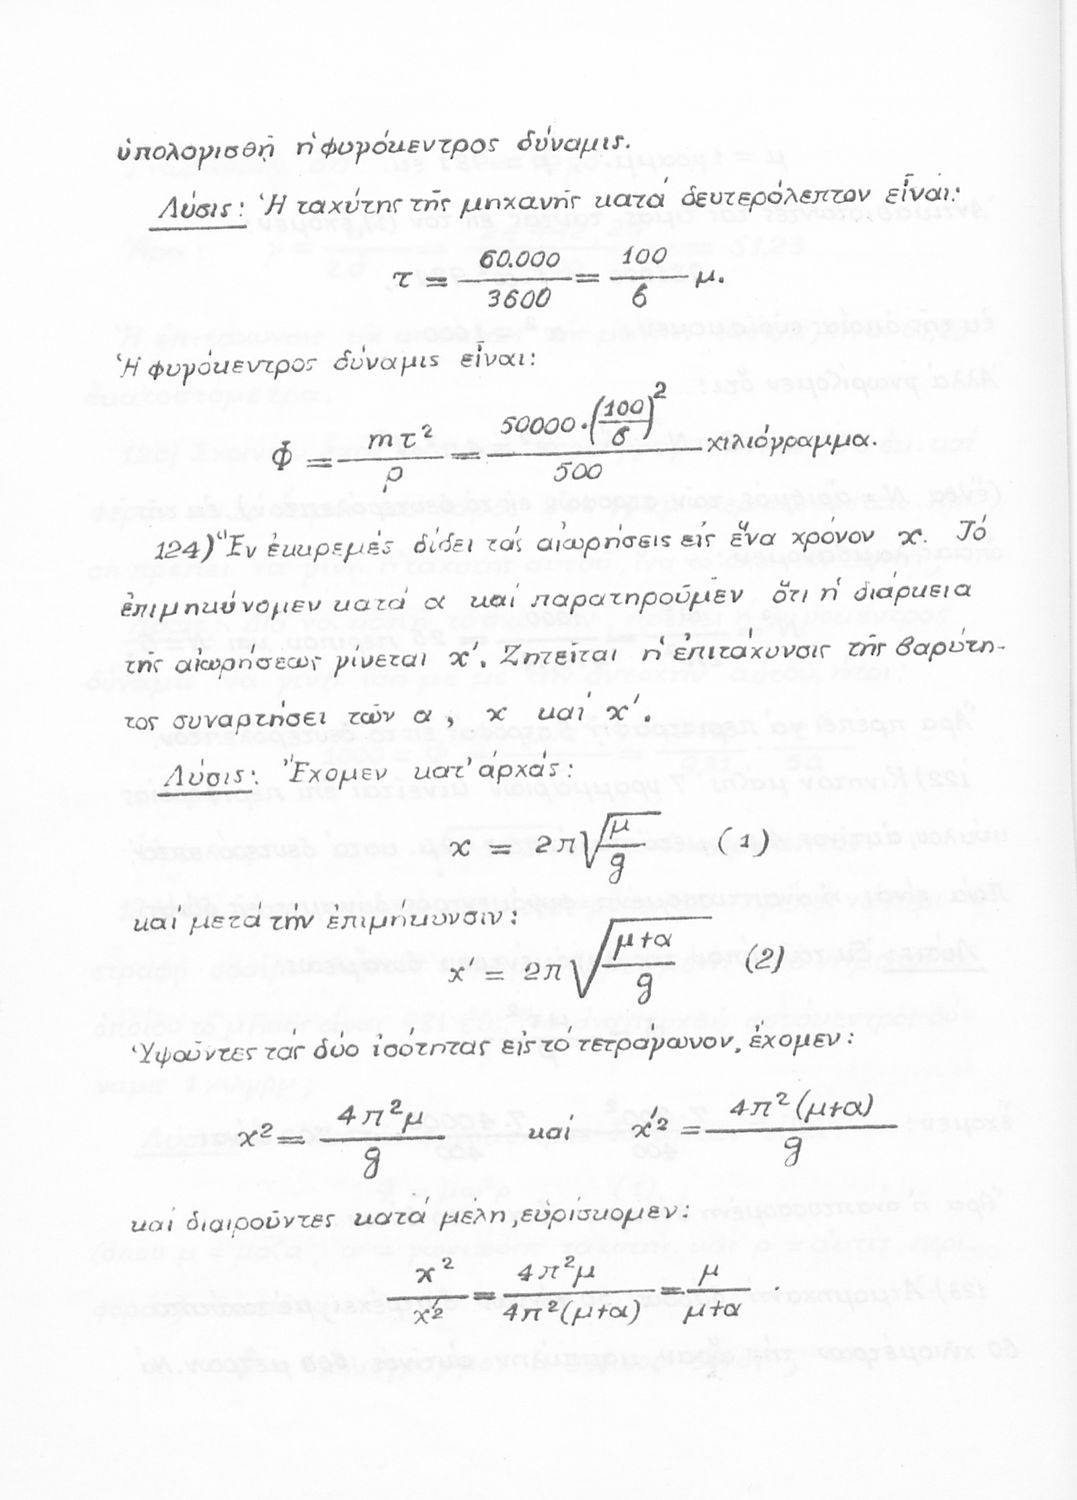 ὑπολογισθῇ ἡ φυγόκεντρος δύναμις.
Λύσις: Ἡ ταχύτης τῆς μηχανῆς κατά δευτερόλεπτον εἶναι:
τ = 60.000/3600 = 100/6 μ.
Ἡ φυγόκεντρος δύναμις εἶναι:
Φ = mτ²/ρ = 50000·(100/6)²/500 χιλιόγραμμα.
124) Ἕν ἐκκρεμές δίδει τάς αἰωρήσεις εἰς ἕνα χρόνον x. Τό
ἐπιμηκύνομεν κατά α καί παρατηροῦμεν ὅτι ἡ διάρκεια
τῆς αἰωρήσεως γίνεται x′. Ζητεῖται ἡ ἐπιτάχυνσις τῆς βαρύτη-
τος συναρτήσει τῶν α, x καί x′.
Λύσις: Ἔχομεν κατ' ἀρχάς:
x = 2π√(μ/g) (1)
καί μετά τήν ἐπιμήκυνσιν:
x′ = 2π√((μ+α)/g) (2)
Ὑψοῦντες τάς δύο ἰσότητας εἰς τό τετράγωνον, ἔχομεν:
x² = 4π²μ/g καί x′² = 4π²(μ+α)/g
καί διαιροῦντες κατά μέλη, εὑρίσκομεν:
x²/x′² = 4π²μ/4π²(μ+α) = μ/μ+α .